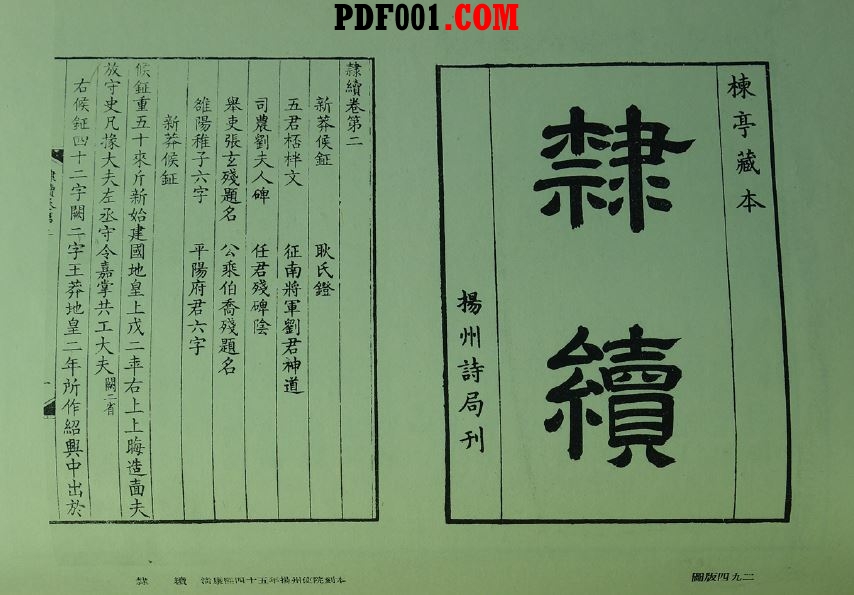 PDF001.COM
楝亭藏本
隸續
揚州詩局刊
隸續卷第二
新莽候鉦 耿氏鐙
五君桮柈文 征南將軍劉君神道
司農劉夫人碑 任君殘碑陰
舉吏張玄殘題名 公乘伯喬殘題名
雒陽稚子六字 平陽府君六字
新莽候鉦
候鉦重五十來斤新始建國地皇上戊二年右上上晦造啬夫
放守史凡掾大夫左丞守令嘉掌共工大夫闕二省
右候鉦四十二字闕二字王莽地皇二年所作紹興中出於
圖版四九二
隸 續 清康熙四十五年揚州使院刻本